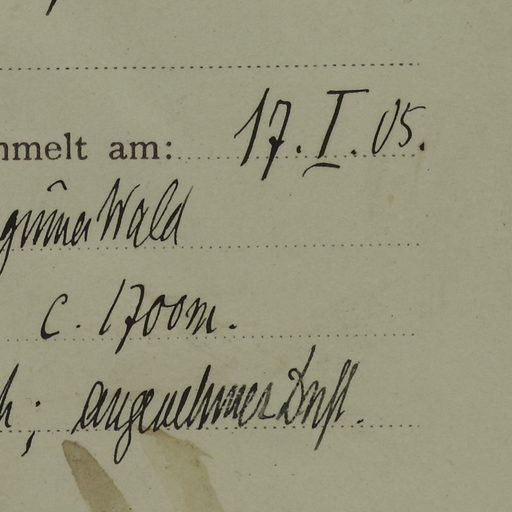 mmelt am: 17. I. 05.
grüner Wald
c. 1700m.
h; angenehmer Duft.